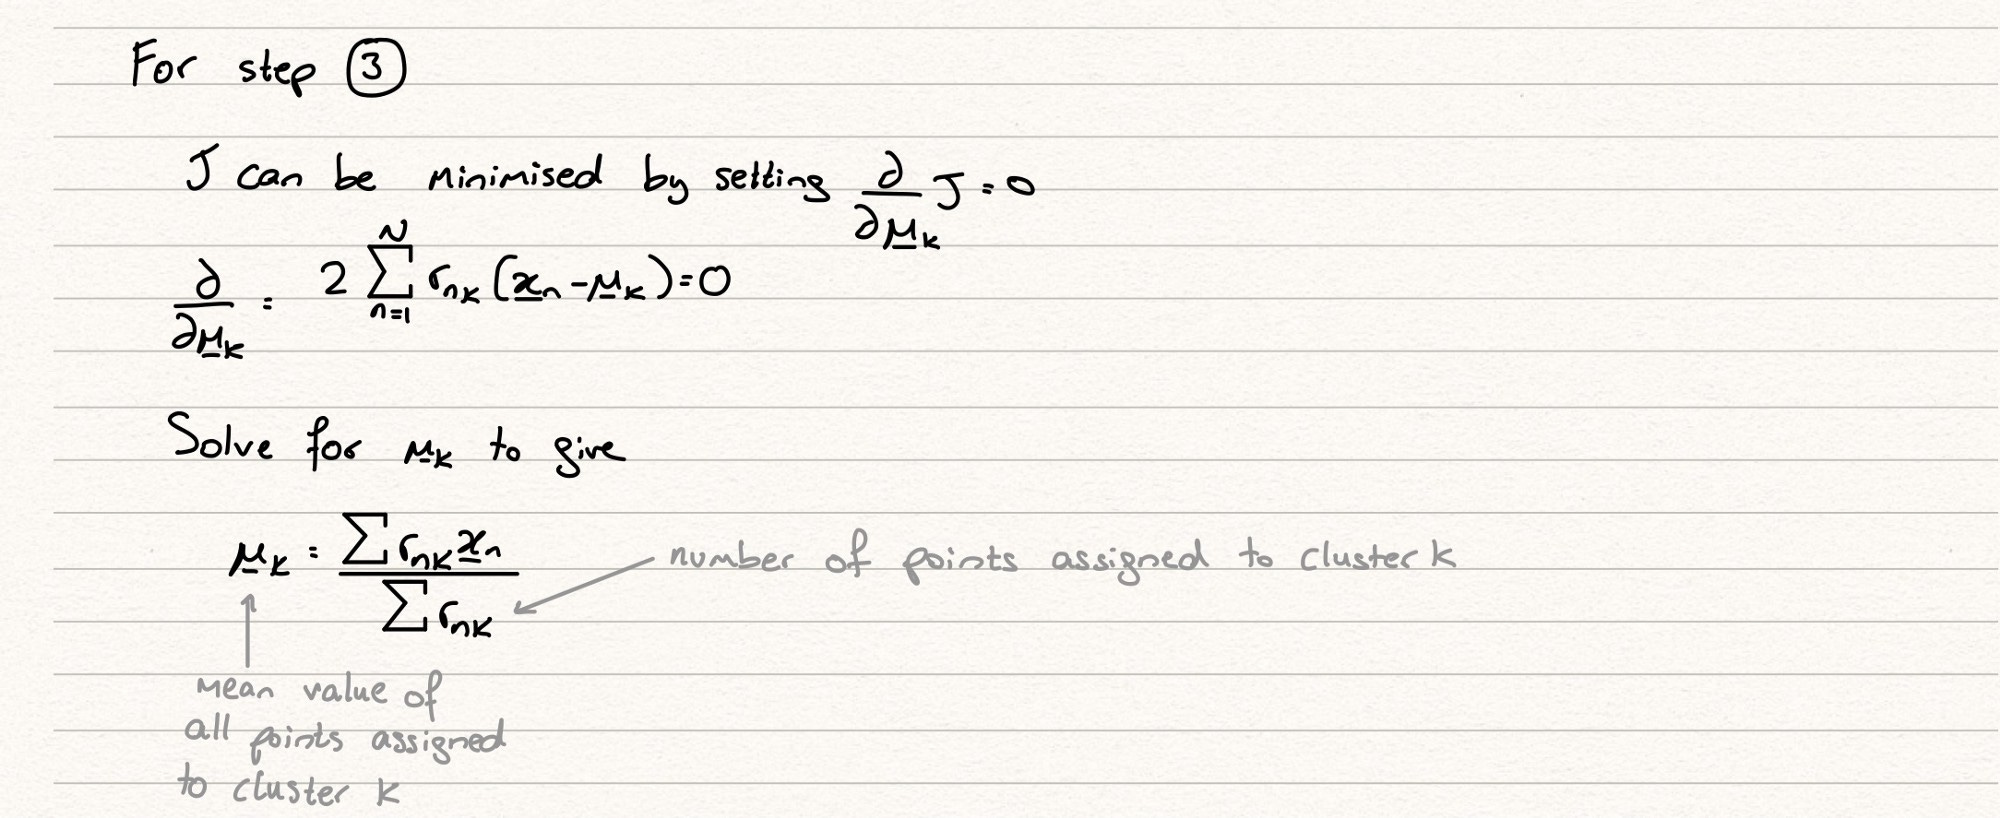 For step ③
J can be minimised by setting ∂/∂μ̲_k J = 0
∂/∂μ̲_k = 2 ∑_{n=1}^{N} r_{nk} (x̲_n - μ̲_k) = 0
Solve for μ̲_k to give
μ̲_k = ∑ r_{nk} x̲_n / ∑ r_{nk} ← number of points assigned to cluster k
↑
mean value of
all points assigned
to cluster k